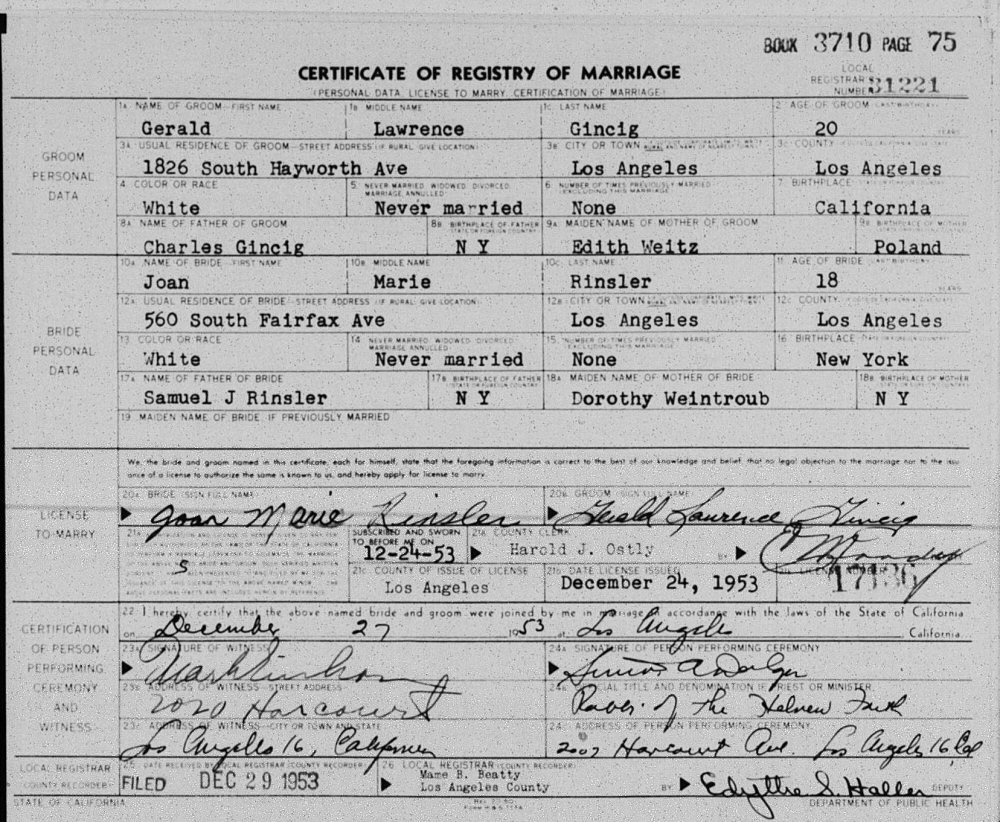 BOOK 3710 PAGE 75
CERTIFICATE OF REGISTRY OF MARRIAGE
LOCAL REGISTRAR NUMBER 31221
(PERSONAL DATA, LICENSE TO MARRY, CERTIFICATION OF MARRIAGE)
GROOM PERSONAL DATA
1A NAME OF GROOM—FIRST NAME 1B MIDDLE NAME 1C. LAST NAME 2 AGE OF GROOM (LAST BIRTHDAY)
Gerald Lawrence Gincig 20 YEARS
3A USUAL RESIDENCE OF GROOM—STREET ADDRESS (IF RURAL, GIVE LOCATION) 3B CITY OR TOWN 3C COUNTY
1826 South Hayworth Ave Los Angeles Los Angeles
4 COLOR OR RACE 5 NEVER MARRIED, WIDOWED, DIVORCED, MARRIAGE ANNULLED 6 NUMBER OF TIMES PREVIOUSLY MARRIED (EXCLUDING THIS MARRIAGE) 7 BIRTHPLACE
White Never married None California
8A NAME OF FATHER OF GROOM 8B BIRTHPLACE OF FATHER (STATE OR FOREIGN COUNTRY) 9A MAIDEN NAME OF MOTHER OF GROOM 9B BIRTHPLACE OF MOTHER
Charles Gincig N Y Edith Weitz Poland
BRIDE PERSONAL DATA
10A NAME OF BRIDE—FIRST NAME 10B MIDDLE NAME 10C LAST NAME 11 AGE OF BRIDE (LAST BIRTHDAY)
Joan Marie Rinsler 18 YEARS
12A USUAL RESIDENCE OF BRIDE—STREET ADDRESS (IF RURAL, GIVE LOCATION) 12B CITY OR TOWN 12C COUNTY
560 South Fairfax Ave Los Angeles Los Angeles
13 COLOR OR RACE 14 NEVER MARRIED, WIDOWED, DIVORCED, MARRIAGE ANNULLED 15 NUMBER OF TIMES PREVIOUSLY MARRIED (EXCLUDING THIS MARRIAGE) 16 BIRTHPLACE
White Never married None New York
17A NAME OF FATHER OF BRIDE 17B BIRTHPLACE OF FATHER (STATE OR FOREIGN COUNTRY) 18A MAIDEN NAME OF MOTHER OF BRIDE 18B BIRTHPLACE OF MOTHER
Samuel J Rinsler N Y Dorothy Weintroub N Y
19 MAIDEN NAME OF BRIDE, IF PREVIOUSLY MARRIED
We, the bride and groom named in this certificate, each for himself, state that the foregoing information is correct to the best of our knowledge and belief, that no legal objection to the marriage nor to the issu
ance of a license to authorize the same is known to us, and hereby apply for license to marry.
LICENSE TO MARRY
20A BRIDE (SIGN FULL NAME) 20B GROOM (SIGN FULL NAME)
Joan Marie Rinsler Gerald Lawrence Gincig
SUBSCRIBED AND SWORN TO BEFORE ME ON 21B COUNTY CLERK
5 12-24-53 Harold J. Ostly BY
21C COUNTY OF ISSUE OF LICENSE 21D DATE LICENSE ISSUED
Los Angeles December 24, 1953 17136
CERTIFICATION OF PERSON PERFORMING CEREMONY AND WITNESS
22 I hereby certify that the above named bride and groom were joined by me in marriage in accordance with the laws of the State of California
on December 27 1953 at Los Angeles, California.
23A SIGNATURE OF WITNESS 24A SIGNATURE OF PERSON PERFORMING CEREMONY
23B ADDRESS OF WITNESS—STREET ADDRESS 24B OFFICIAL TITLE AND DENOMINATION IF PRIEST OR MINISTER
2020 Harcourt of the Hebrew Faith
23C ADDRESS OF WITNESS—CITY OR TOWN AND STATE 24C ADDRESS OF PERSON PERFORMING CEREMONY
Los Angeles 16, California 2007 Harcourt Ave. Los Angeles 16 Cal
LOCAL REGISTRAR (COUNTY RECORDER) 25 DATE RECEIVED BY LOCAL REGISTRAR (COUNTY RECORDER) 26 LOCAL REGISTRAR (COUNTY RECORDER)
FILED DEC 29 1953 Mame B. Beatty
Los Angeles County BY Edythe S. Haller DEPUTY
STATE OF CALIFORNIA DEPARTMENT OF PUBLIC HEALTH